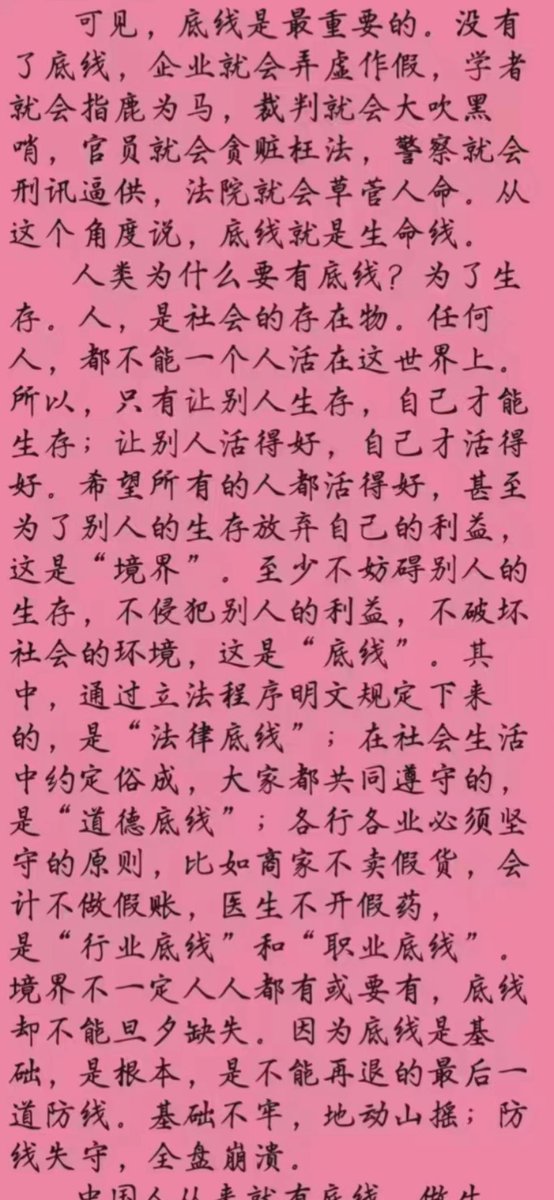 可见，底线是最重要的。没有
了底线，企业就会弄虚作假，学者
就会指鹿为马，裁判就会大吹黑
哨，官员就会贪赃枉法，警察就会
刑讯逼供，法院就会草菅人命。从
这个角度说，底线就是生命线。
人类为什么要有底线？为了生
存。人，是社会的存在物。任何
人，都不能一个人活在这世界上。
所以，只有让别人生存，自己才能
生存；让别人活得好，自己才活得
好。希望所有的人都活得好，甚至
为了别人的生存放弃自己的利益，
这是“境界”。至少不妨碍别人的
生存，不侵犯别人的利益，不破坏
社会的环境，这是“底线”。其
中，通过立法程序明文规定下来
的，是“法律底线”；在社会生活
中约定俗成，大家都共同遵守的，
是“道德底线”；各行各业必须坚
守的原则，比如商家不卖假货，会
计不做假账，医生不开假药，
是“行业底线”和“职业底线”。
境界不一定人人都有或要有，底线
却不能旦夕缺失。因为底线是基
础，是根本，是不能再退的最后一
道防线。基础不牢，地动山摇；防
线失守，全盘崩溃。
中国人从来就有底线。做生